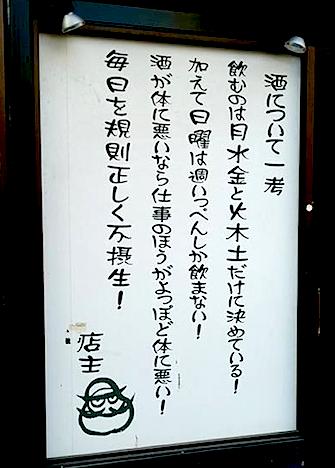 酒について一考
飲むのは月水金と火木土だけに決めている!
加えて日曜は週いっぺんしか飲まない!
酒が体に悪いなら仕事のほうがよっぽど体に悪い!
毎日を規則正しく不摂生!
店主